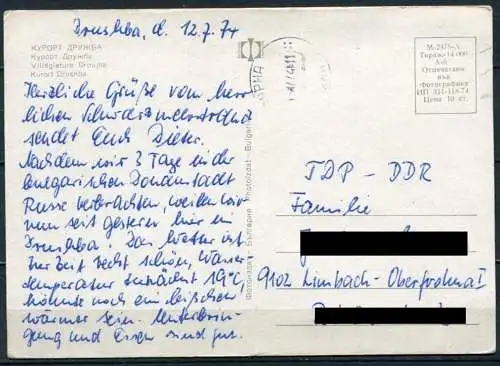 Drushba, d. 12.7.74
КУРОРТ ДРУЖБА
Курорт Дружба
Villégiature Droujba
Kurort Drushba
Herzliche Grüße vom herr-
lichen Schwarzmeerstrand
sendet Euch Dieter.
Nachdem wir 3 Tage in der
bulgarischen Donaustadt
Russe verbrachten, weilen wir
nun seit gestern hier in
Drushba. Das Wetter ist
zur Zeit recht schön, Wasser-
temperatur zunächst 19°C,
könnte noch ein bißchen
wärmer sein. Unterbrin-
gung und Essen sind gut.
Фотоиздат · България Photoizdat · Bulgaria
М-2475-А
Тираж 14 000
А-6
Отпечатано
във
Фотографика
ИП 311-118-74
Цена 10 ст.
TDP - DDR
Familie
9102 Limbach-Oberfrohna I